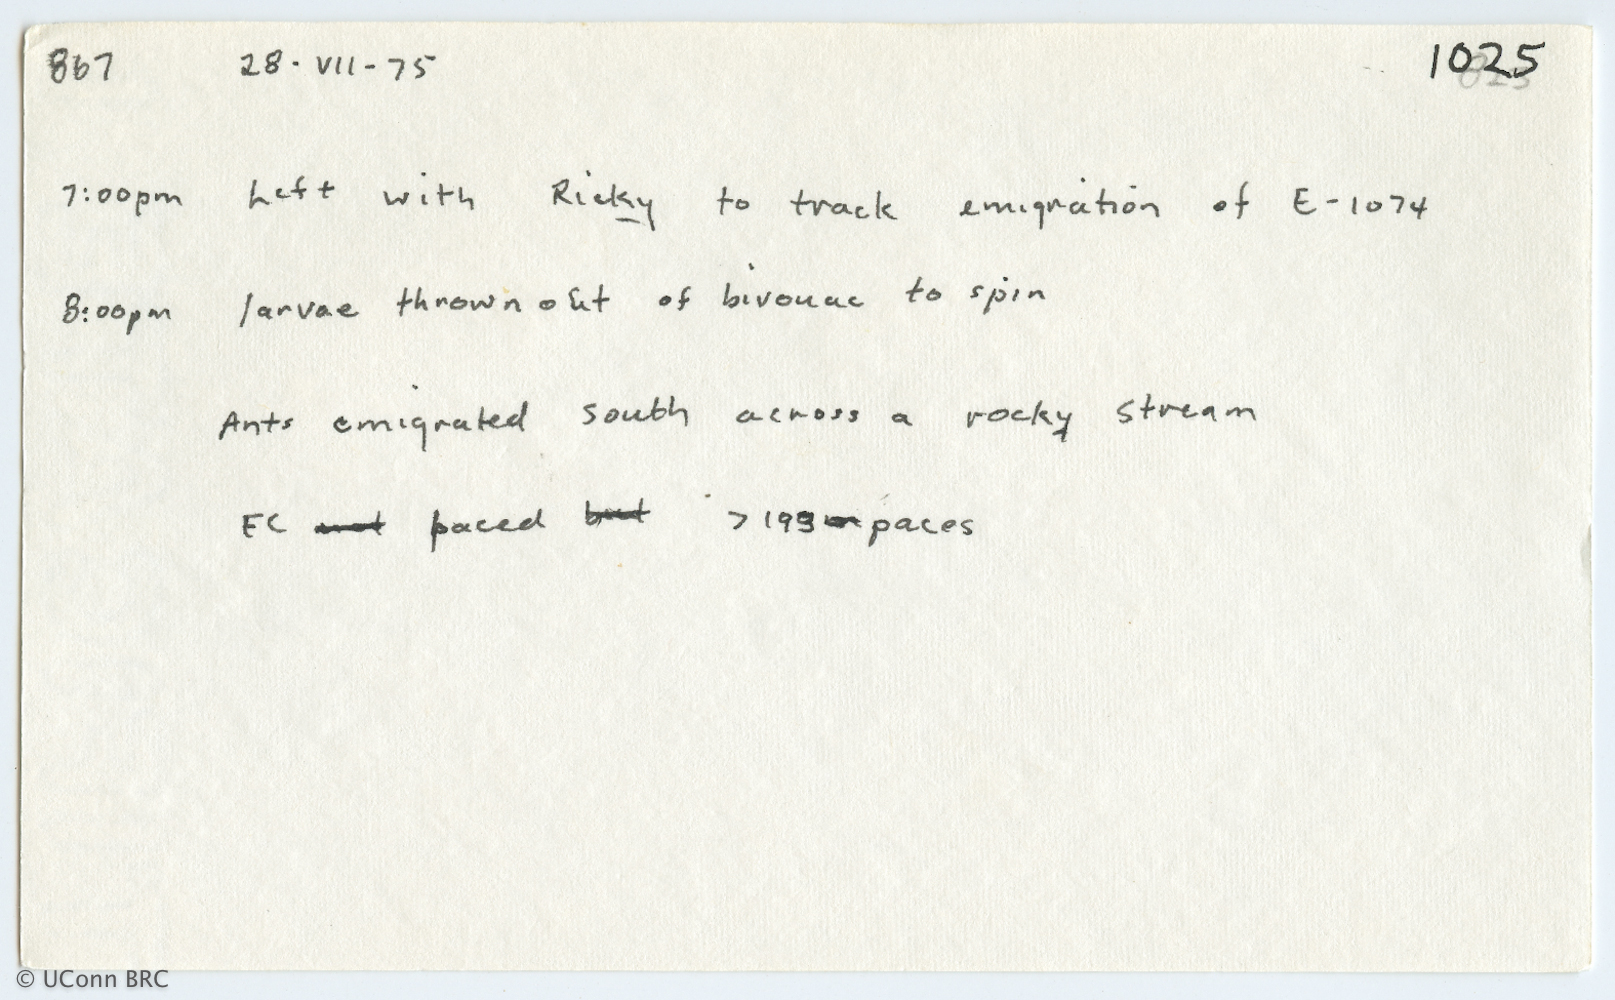 867 28-VII-75 1025
7:00pm Left with Ricky to track emigration of E-1074
8:00pm larvae thrown out of bivouac to spin
Ants emigrated south across a rocky stream
EC not paced but >193 paces
© UConn BRC